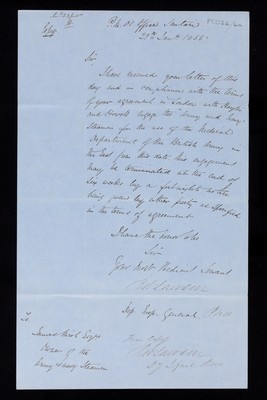 Copy
P. M. O's Office Scutari
29th Jany 1856
Sir
I have received your letter of this
day and in compliance with the terms
of your agreement in London with
and engage the "Army and Navy"
Steamer for the use of the Medical
Department of the British Army in
the East from this date this engagement
may be terminated at the end of
six weeks by a fortnights notice
being given by either party as specified
in the terms of agreement
I have the honor to be
Sir
Your Most Obedient Servant
Lawson
Dep. Insp. General
To
James Esqre
Owner of the
Army & Navy Steamer
True Copy
Lawson